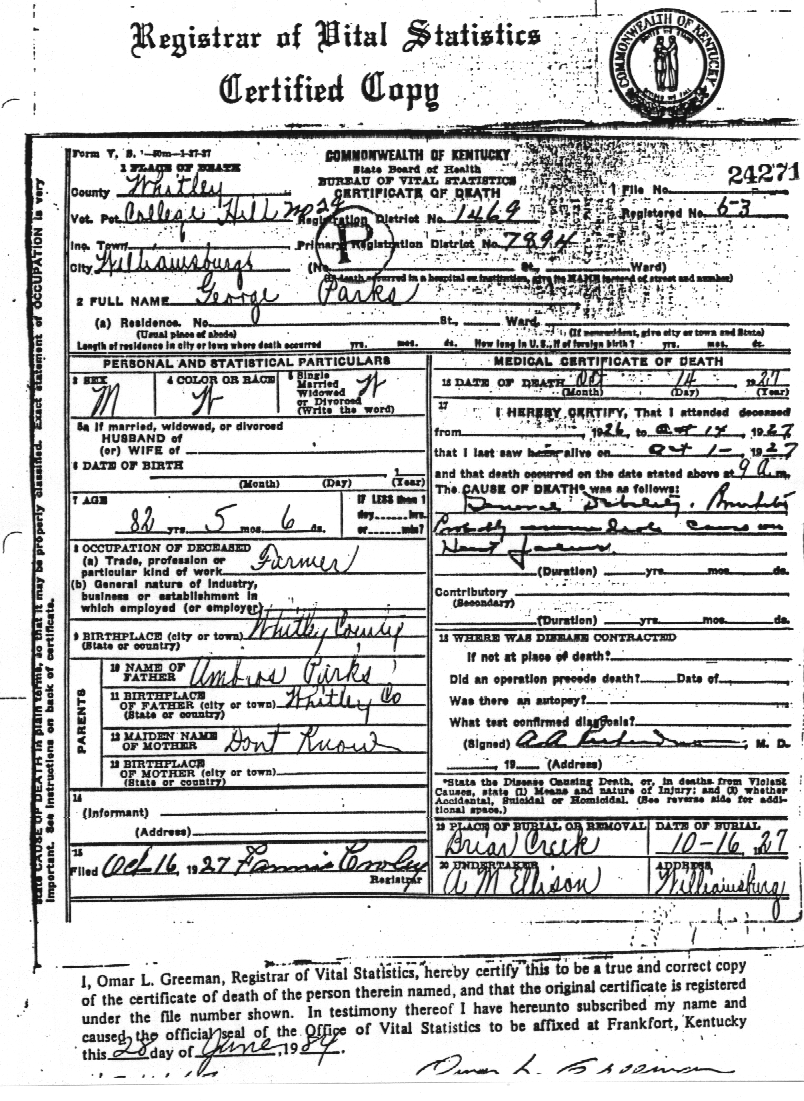 Registrar of Vital Statistics
Certified Copy
COMMONWEALTH OF KENTUCKY
Form V. S. 1-50m-1-27-27
COMMONWEALTH OF KENTUCKY
State Board of Health
BUREAU OF VITAL STATISTICS
CERTIFICATE OF DEATH
1 PLACE OF DEATH
County Whitley
File No. 24271
Vot. Pct. College Hill No 29 Registration District No. 1469 Registered No. 63
Inc. Town Primary Registration District No. 7894
P
City Williamsburg (No. St., Ward)
(If death occurred in a hospital or institution, give its NAME instead of street and number)
2 FULL NAME George Parks
(a) Residence. No. St., Ward.
(Usual place of abode) (If nonresident, give city or town and State)
Length of residence in city or town where death occurred yrs. mos. ds. How long in U. S., if of foreign birth? yrs. mos. ds.
PERSONAL AND STATISTICAL PARTICULARS
3 SEX M
4 COLOR OR RACE W
5 Single Married Widowed or Divorced (Write the word) W
5a If married, widowed, or divorced
HUSBAND of
(or) WIFE of
6 DATE OF BIRTH
(Month) (Day) (Year)
7 AGE
82 yrs. 5 mos. 6 ds.
IF LESS than 1
day hrs.
or min?
8 OCCUPATION OF DECEASED
(a) Trade, profession or
particular kind of work Farmer
(b) General nature of industry,
business or establishment in
which employed (or employer)
9 BIRTHPLACE (city or town) Whitley County
(State or country)
PARENTS
10 NAME OF
FATHER Ambros Parks
11 BIRTHPLACE
OF FATHER (city or town) Whitley Co
(State or country)
12 MAIDEN NAME
OF MOTHER Dont Know
13 BIRTHPLACE
OF MOTHER (city or town)
(State or country)
14
(Informant)
(Address)
15
Filed Oct 16, 1927 Fannie Cowley
Registrar
MEDICAL CERTIFICATE OF DEATH
16 DATE OF DEATH Oct 14 1927
(Month) (Day) (Year)
17
I HEREBY CERTIFY, That I attended deceased
from 1926, to Oct 14, 1927,
that I last saw alive on Oct 1-, 1927
and that death occurred on the date stated above at 9 a.m.
The CAUSE OF DEATH* was as follows:
General Debility.
Probably cause
Heart failure
(Duration) yrs. mos. ds.
Contributory
(Secondary)
(Duration) yrs. mos. ds.
18 WHERE WAS DISEASE CONTRACTED
If not at place of death?
Did an operation precede death? Date of
Was there an autopsy?
What test confirmed diagnosis?
(Signed) , M. D.
, 19 (Address)
*State the Disease Causing Death, or, in deaths from Violent
Causes, state (1) Means and nature of Injury; and (2) whether
Accidental, Suicidal or Homicidal. (See reverse side for addi-
tional space.)
19 PLACE OF BURIAL OR REMOVAL
Briar Creek
DATE OF BURIAL
10-16, 1927
20 UNDERTAKER
A M Ellison
ADDRESS
Williamsburg
CAUSE OF DEATH in plain terms, so that it may be properly classified. Exact statement of OCCUPATION is very
important. See instructions on back of certificate.
I, Omar L. Greeman, Registrar of Vital Statistics, hereby certify this to be a true and correct copy
of the certificate of death of the person therein named, and that the original certificate is registered
under the file number shown. In testimony thereof I have hereunto subscribed my name and
caused the official seal of the Office of Vital Statistics to be affixed at Frankfort, Kentucky
this 28 day of June, 1984.
Omar L. Greeman